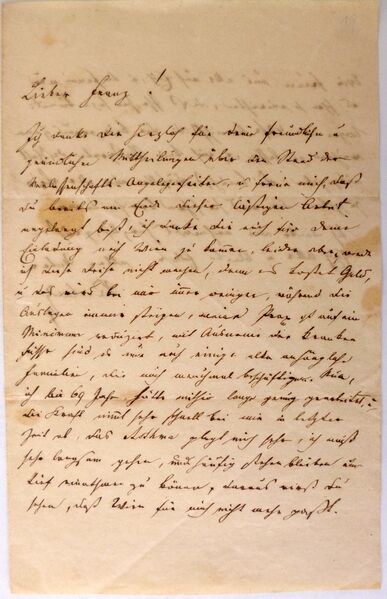 Lieber Franz!
Ich danke Dir herzlich für Deine freundlichen u
gründlichen Mittheilungen über den Stand der
Verlassenschafts-Angelegenheiten, u freue mich, daß
Du bereits am Ende dieser lästigen Arbeit
angelangt bist, ich danke Dir auch für Deine
Einladung nach Wien zu kommen, leider aber werde
ich diese Reise nicht machen, denn es kostet Geld,
u das wird bei mir immer weniger, während die
Auslagen immer steigen, meine Praxis ist auf ein
Minimum reduzirt, mit Ausnahme der Kranken
sind es nur noch einige alte anhängliche
Familien, die mich manchmal beschäftigen. Nun,
ich bin 69 Jahr, hätte mithin lange genug gearbeitet, u
die Kraft nimmt sehr schnell bei mir in letzter
Zeit ab, das Asthma plagt mich sehr, ich muß
sehr langsam gehen, und häufig stehen bleiben um
tief einathmen zu können, daraus wirst Du
sehen, daß Wien für mich nicht mehr paßt.